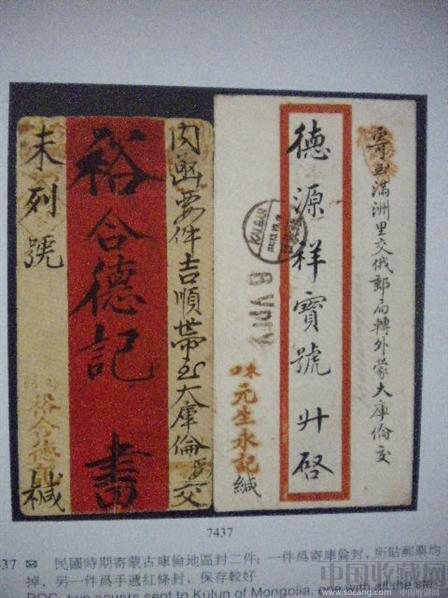 未列號
裕合德記 書
裕合德記
緘
內函要件吉順帶至大庫倫
交
德源祥寶號 升啓
寄至滿洲里交俄郵局轉外蒙大庫倫交
元生永記
緘
KALGAN
7437
37 民國時期寄蒙古庫倫地區封二件：一件爲寄庫倫封，所貼郵票均
掉，另一件爲手遞紅條封，保存較好
ROC, two covers sent to Kulun of Mongolia, one with all the
中国收藏网
www.socang.com 中国收藏网